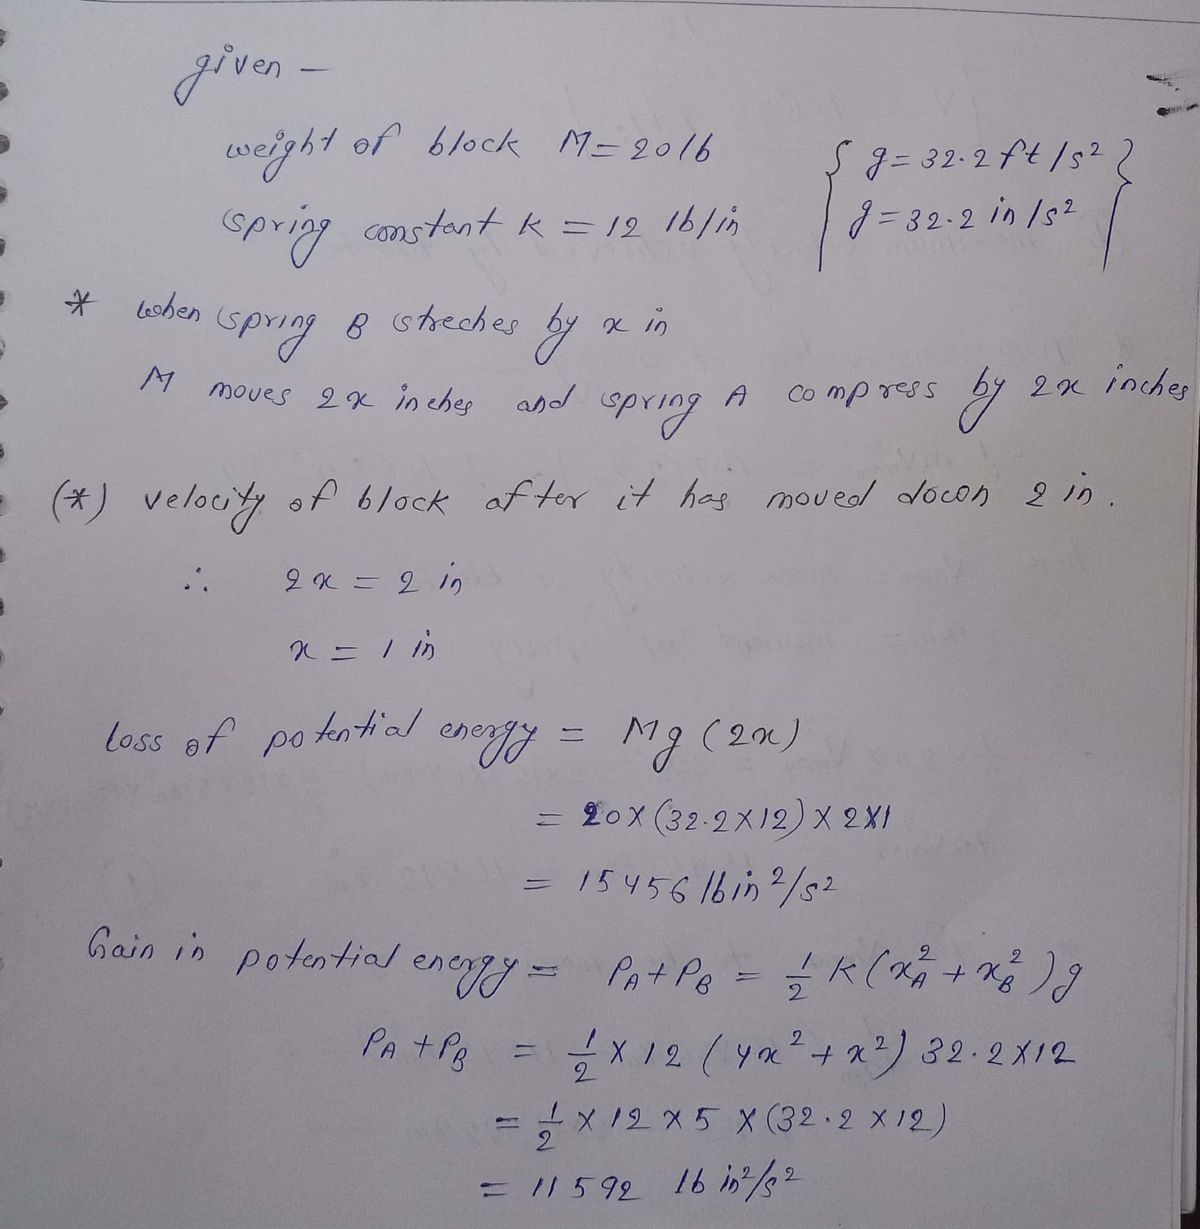 given -
weight of block M = 20 lb
{ g = 32.2 ft/s² }
spring constant k = 12 lb/in
{ g = 32.2 in/s² }
* when spring B streches by x in
M moves 2x inches and spring A compress by 2x inches
(*) velocity of block after it has moved down 2 in.
∴ 2x = 2 in
x = 1 in
loss of potential energy = Mg (2x)
= 20 X (32.2 X 12) X 2 X 1
= 15456 lb in²/s²
Gain in potential energy = PA + PB = 1/2 K (xA² + xB²) g
PA + PB = 1/2 X 12 (4x² + x²) 32.2 X 12
= 1/2 X 12 X 5 X (32.2 X 12)
= 11592 lb in²/s²